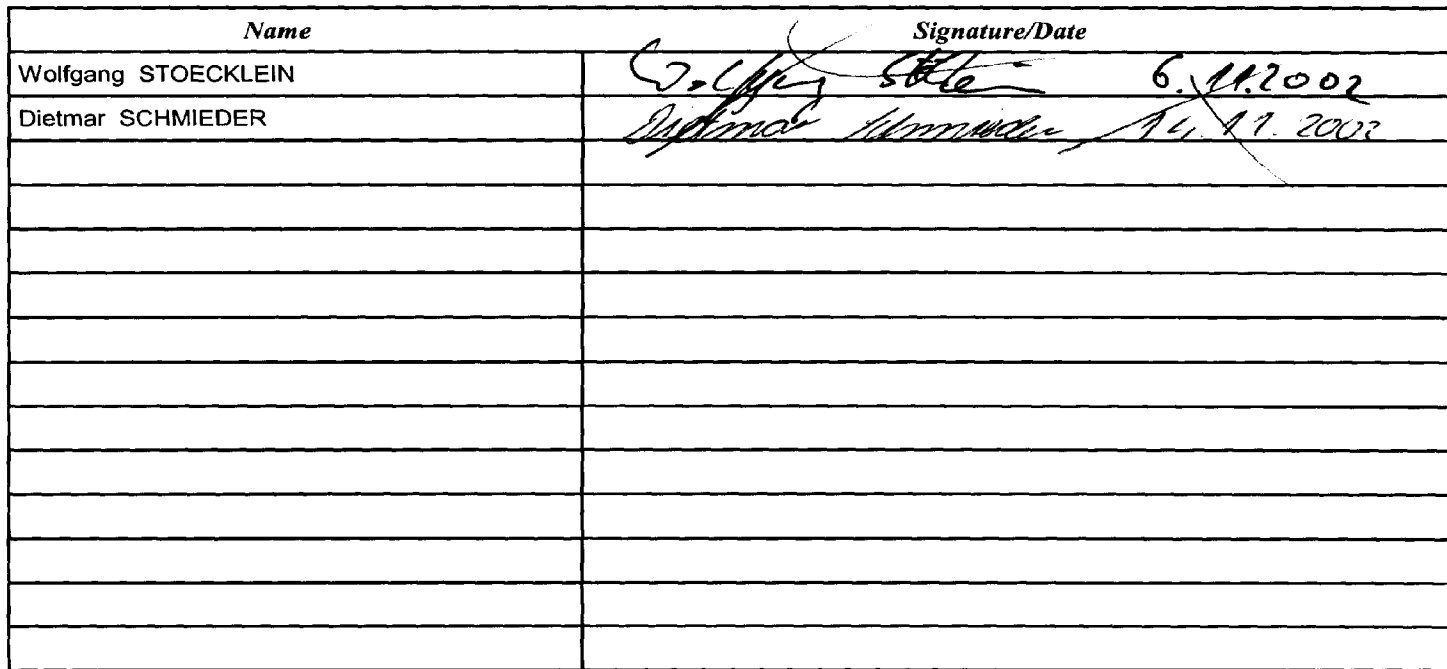 Name Signature/Date
Wolfgang STOECKLEIN Wolfgang 6.11.2002
Dietmar SCHMIEDER Dietmar Schmieder 14.11.2002